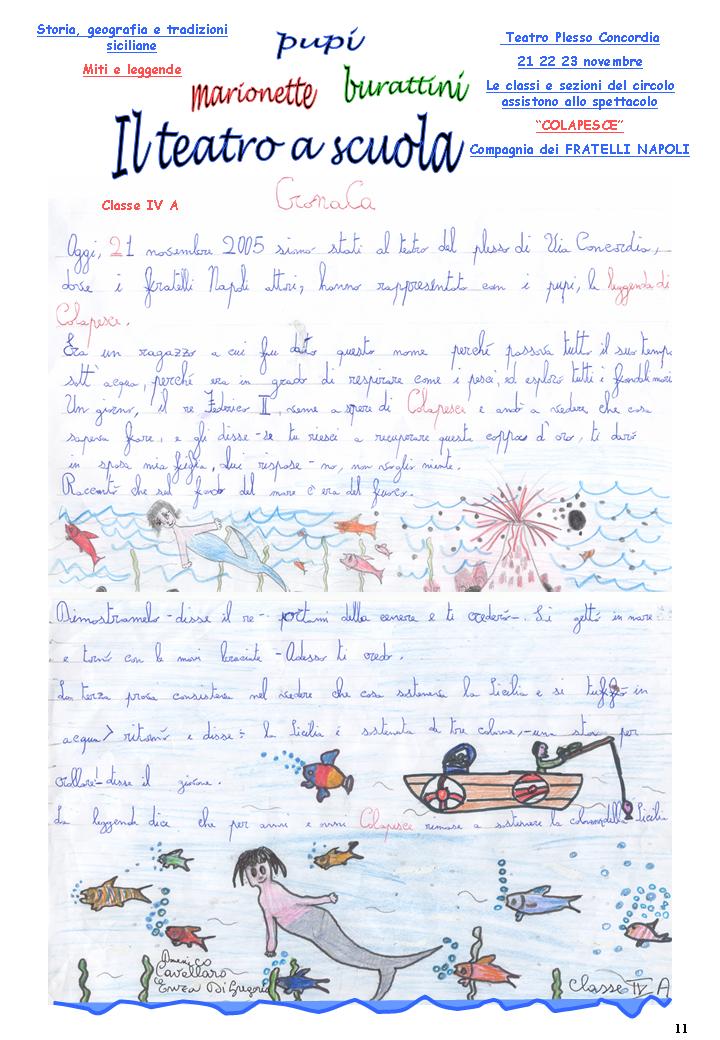 Storia, geografia e tradizioni
siciliane
Miti e leggende
pupi
marionette
burattini
Il teatro a scuola
Teatro Plesso Concordia
21 22 23 novembre
Le classi e sezioni del circolo
assistono allo spettacolo
“COLAPESCE”
Compagnia dei FRATELLI NAPOLI
Classe IV A
Cronaca
Oggi, 21 novembre 2005 siamo stati al teatro del plesso di Via Concordia,
dove i fratelli Napoli attori, hanno rappresentato con i pupi, la leggenda di
Colapesce.
Era un ragazzo a cui fu dato questo nome perché passava tutto il suo tempo
sott'acqua, perché era in grado di respirare come i pesci, ed esplorò tutti i fondali marini
Un giorno, il re Federico II, venne a sapere di Colapesce e andò a vedere che cosa
sapeva fare, e gli disse - se tu riesci a recuperare questa coppa d'oro, ti darò
in sposa mia figlia, lui rispose - no, non voglio niente.
Raccontò che sul fondo del mare c'era del fuoco.
Dimostramelo - disse il re - portami della cenere e ti crederò -. Si gettò in mare
e tornò con le mani bruciate - Adesso ti credo.
La terza prova consisteva nel vedere che cosa sosteneva la Sicilia e si tuffò in
acqua > ritornò e disse: la Sicilia è sostenuta da tre colonne, - una sta per
crollare! - disse il giovane.
La leggenda dice che per anni e anni Colapesce rimase a sostenere la colonna della Sicilia
Domenico
Cavallaro
Enza Di Gregorio
Classe IV A
11